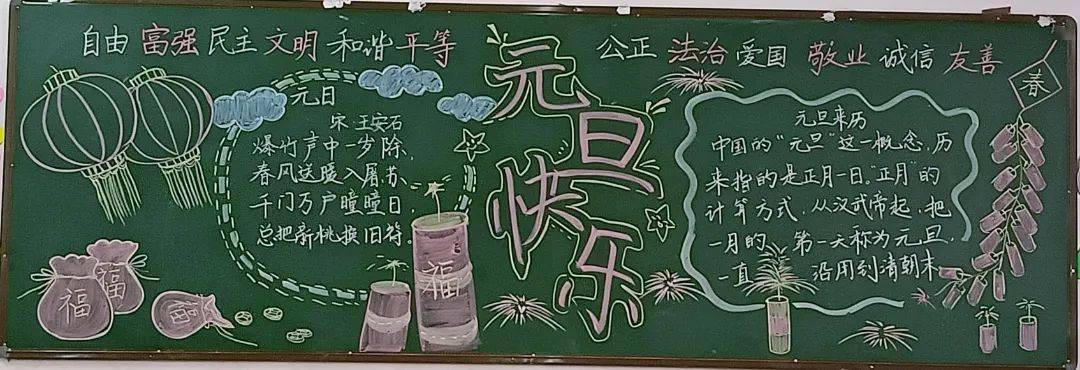 自由 富强 民主 文明 和谐 平等
公正 法治 爱国 敬业 诚信 友善
元旦快乐
元日
宋·王安石
爆竹声中一岁除，
春风送暖入屠苏。
千门万户曈曈日，
总把新桃换旧符。
元旦来历
中国的“元旦”这一概念，历
来指的是正月一日。“正月”的
计算方式，从汉武帝起，把
一月的 第一天称为元旦，
一直 沿用到清朝末
春
福
福
福
福